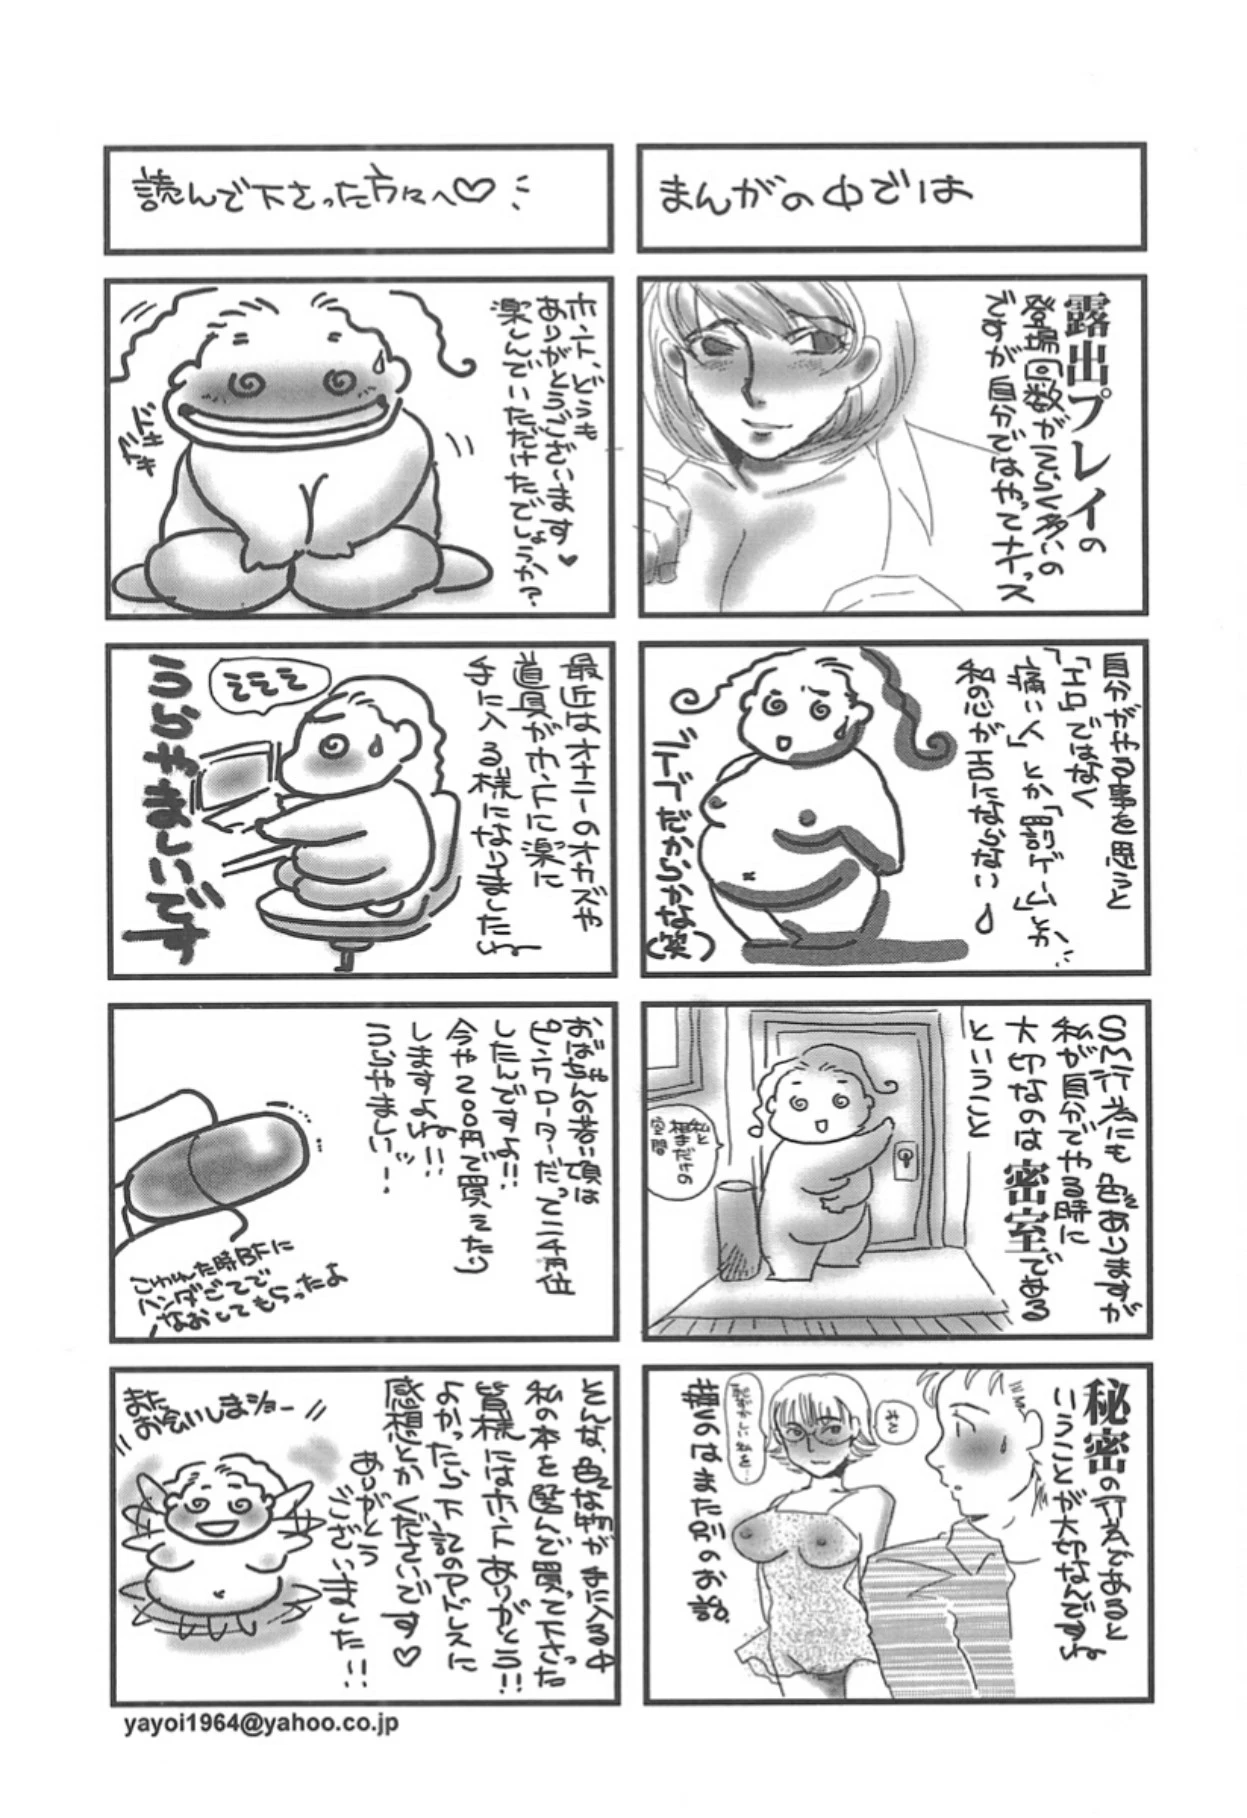 まんがの中では
露出プレイの
登場回数がえらく多いの
ですが自分ではやってナイっス
自分がやる事を思うと
「エロ」ではなく
「痛い人」とか「罰ゲーム」とか、
私の心がエロにならない
デブだからかな(笑)
SM行為にも色々ありますが
私が自分でやる時に
大切なのは密室である
ということ
私と
相手だけの
空間
秘密の行為であると
いうことが大切なんですね
みて
恥ずかしい私を…
描くのはまた別のお話。
読んで下さった方々へ♡
ホント、どうも
ありがとうございます♥
楽しんでいただけたでしょうか?
ドキ
ドキ
最近はオナニーのオカズや
道具がホントに楽に
手に入る様になりましたね
えええ
うらやましいです
おばちゃんの若い頃は
ピンクローターだって二千円位
したんですよ!!
今や200円で買えたり
しますよね!!
うらやましい!
こわれた時BFに
ハンダごてで
なおしてもらったよ
そんな、色んな物が手に入る中
私の本を選んで買って下さった
皆様にはホントありがとう!!
よかったら下記のアドレスに
感想とかくださいです♡
ありがとう
ございました!!
また
お会いしまショー
yayoi1964@yahoo.co.jp